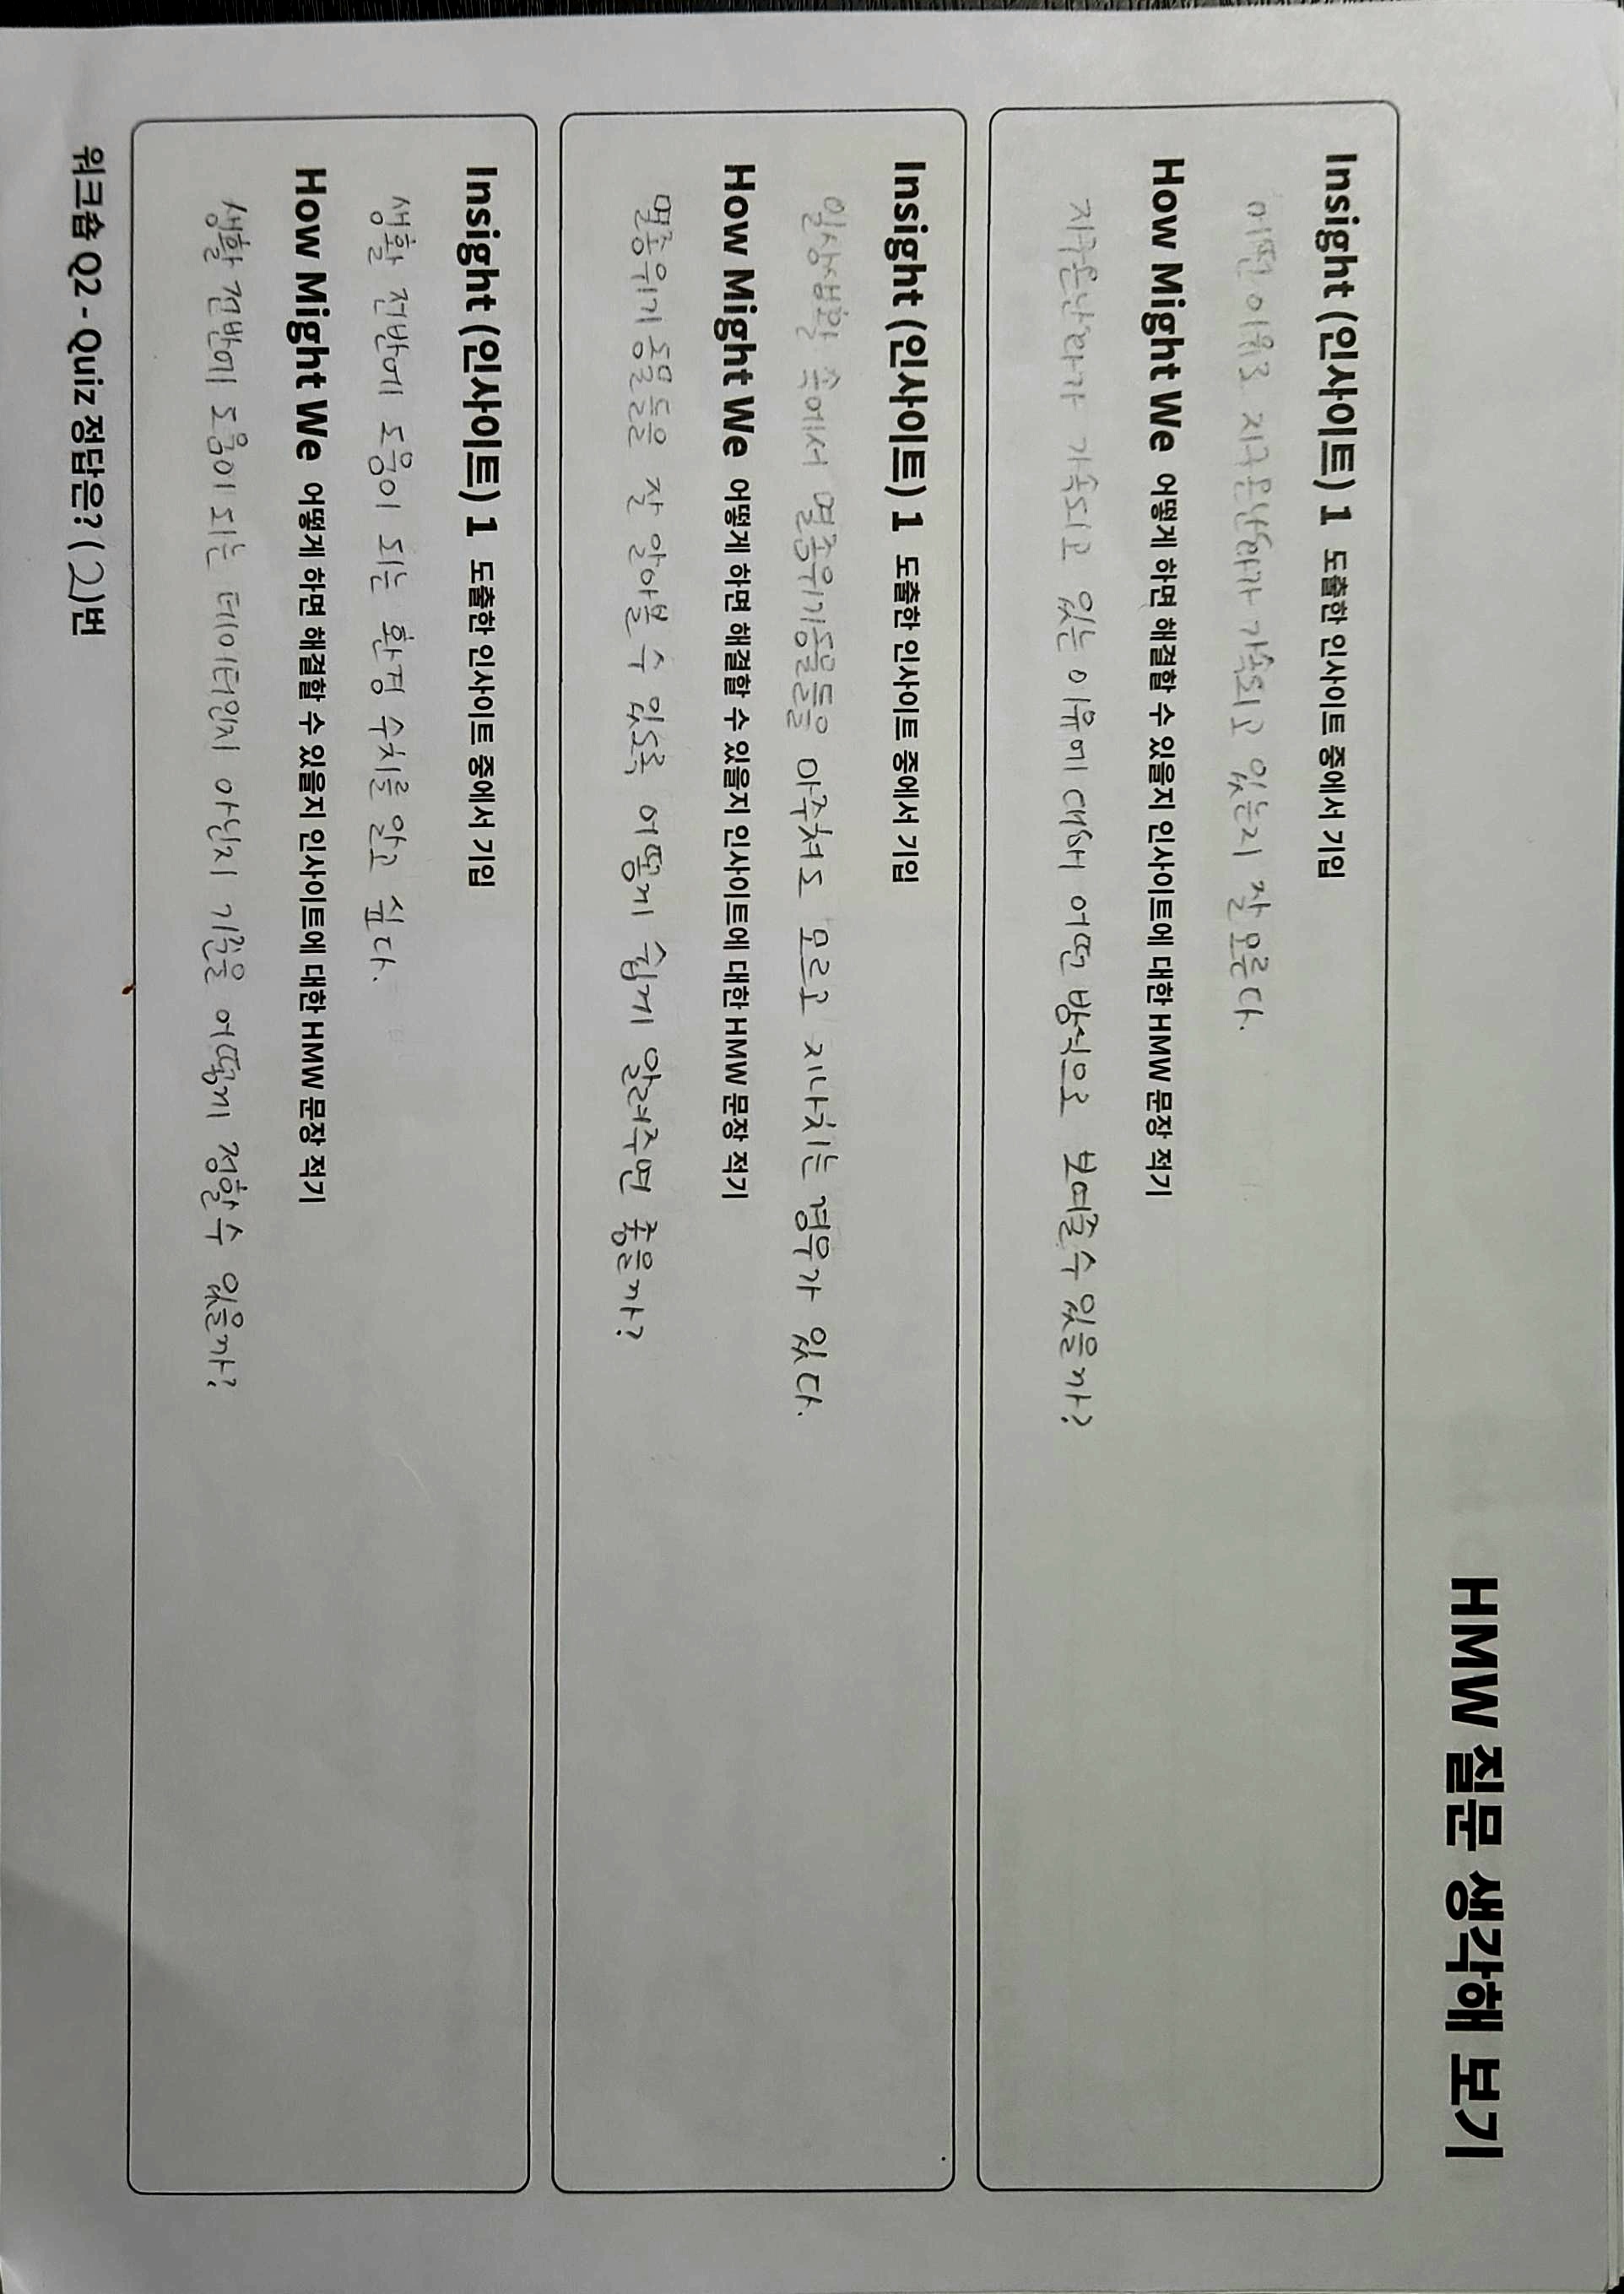 HMW 질문 생각해 보기
Insight (인사이트) 1 도출한 인사이트 중에서 기입
어떤 이유로 지구온난화가 가속되고 있는지 잘 모른다.
How Might We 어떻게 하면 해결할 수 있을지 인사이트에 대한 HMW 문장 적기
지구온난화가 가속되고 있는 이유에 대해 어떤 방식으로 보여줄 수 있을까?
Insight (인사이트) 1 도출한 인사이트 중에서 기입
일상생활 속에서 멸종위기동물들을 마주쳐도 모르고 지나치는 경우가 있다.
How Might We 어떻게 하면 해결할 수 있을지 인사이트에 대한 HMW 문장 적기
멸종위기 동물들을 잘 알아볼 수 있도록 어떻게 쉽게 알려주면 좋을까?
Insight (인사이트) 1 도출한 인사이트 중에서 기입
생활 전반에 도움이 되는 환경 수치를 알고 싶다.
How Might We 어떻게 하면 해결할 수 있을지 인사이트에 대한 HMW 문장 적기
생활 전반에 도움이 되는 데이터인지 아닌지 기준을 어떻게 정할 수 있을까?
워크숍 Q2 - Quiz 정답은? ( 2 )번